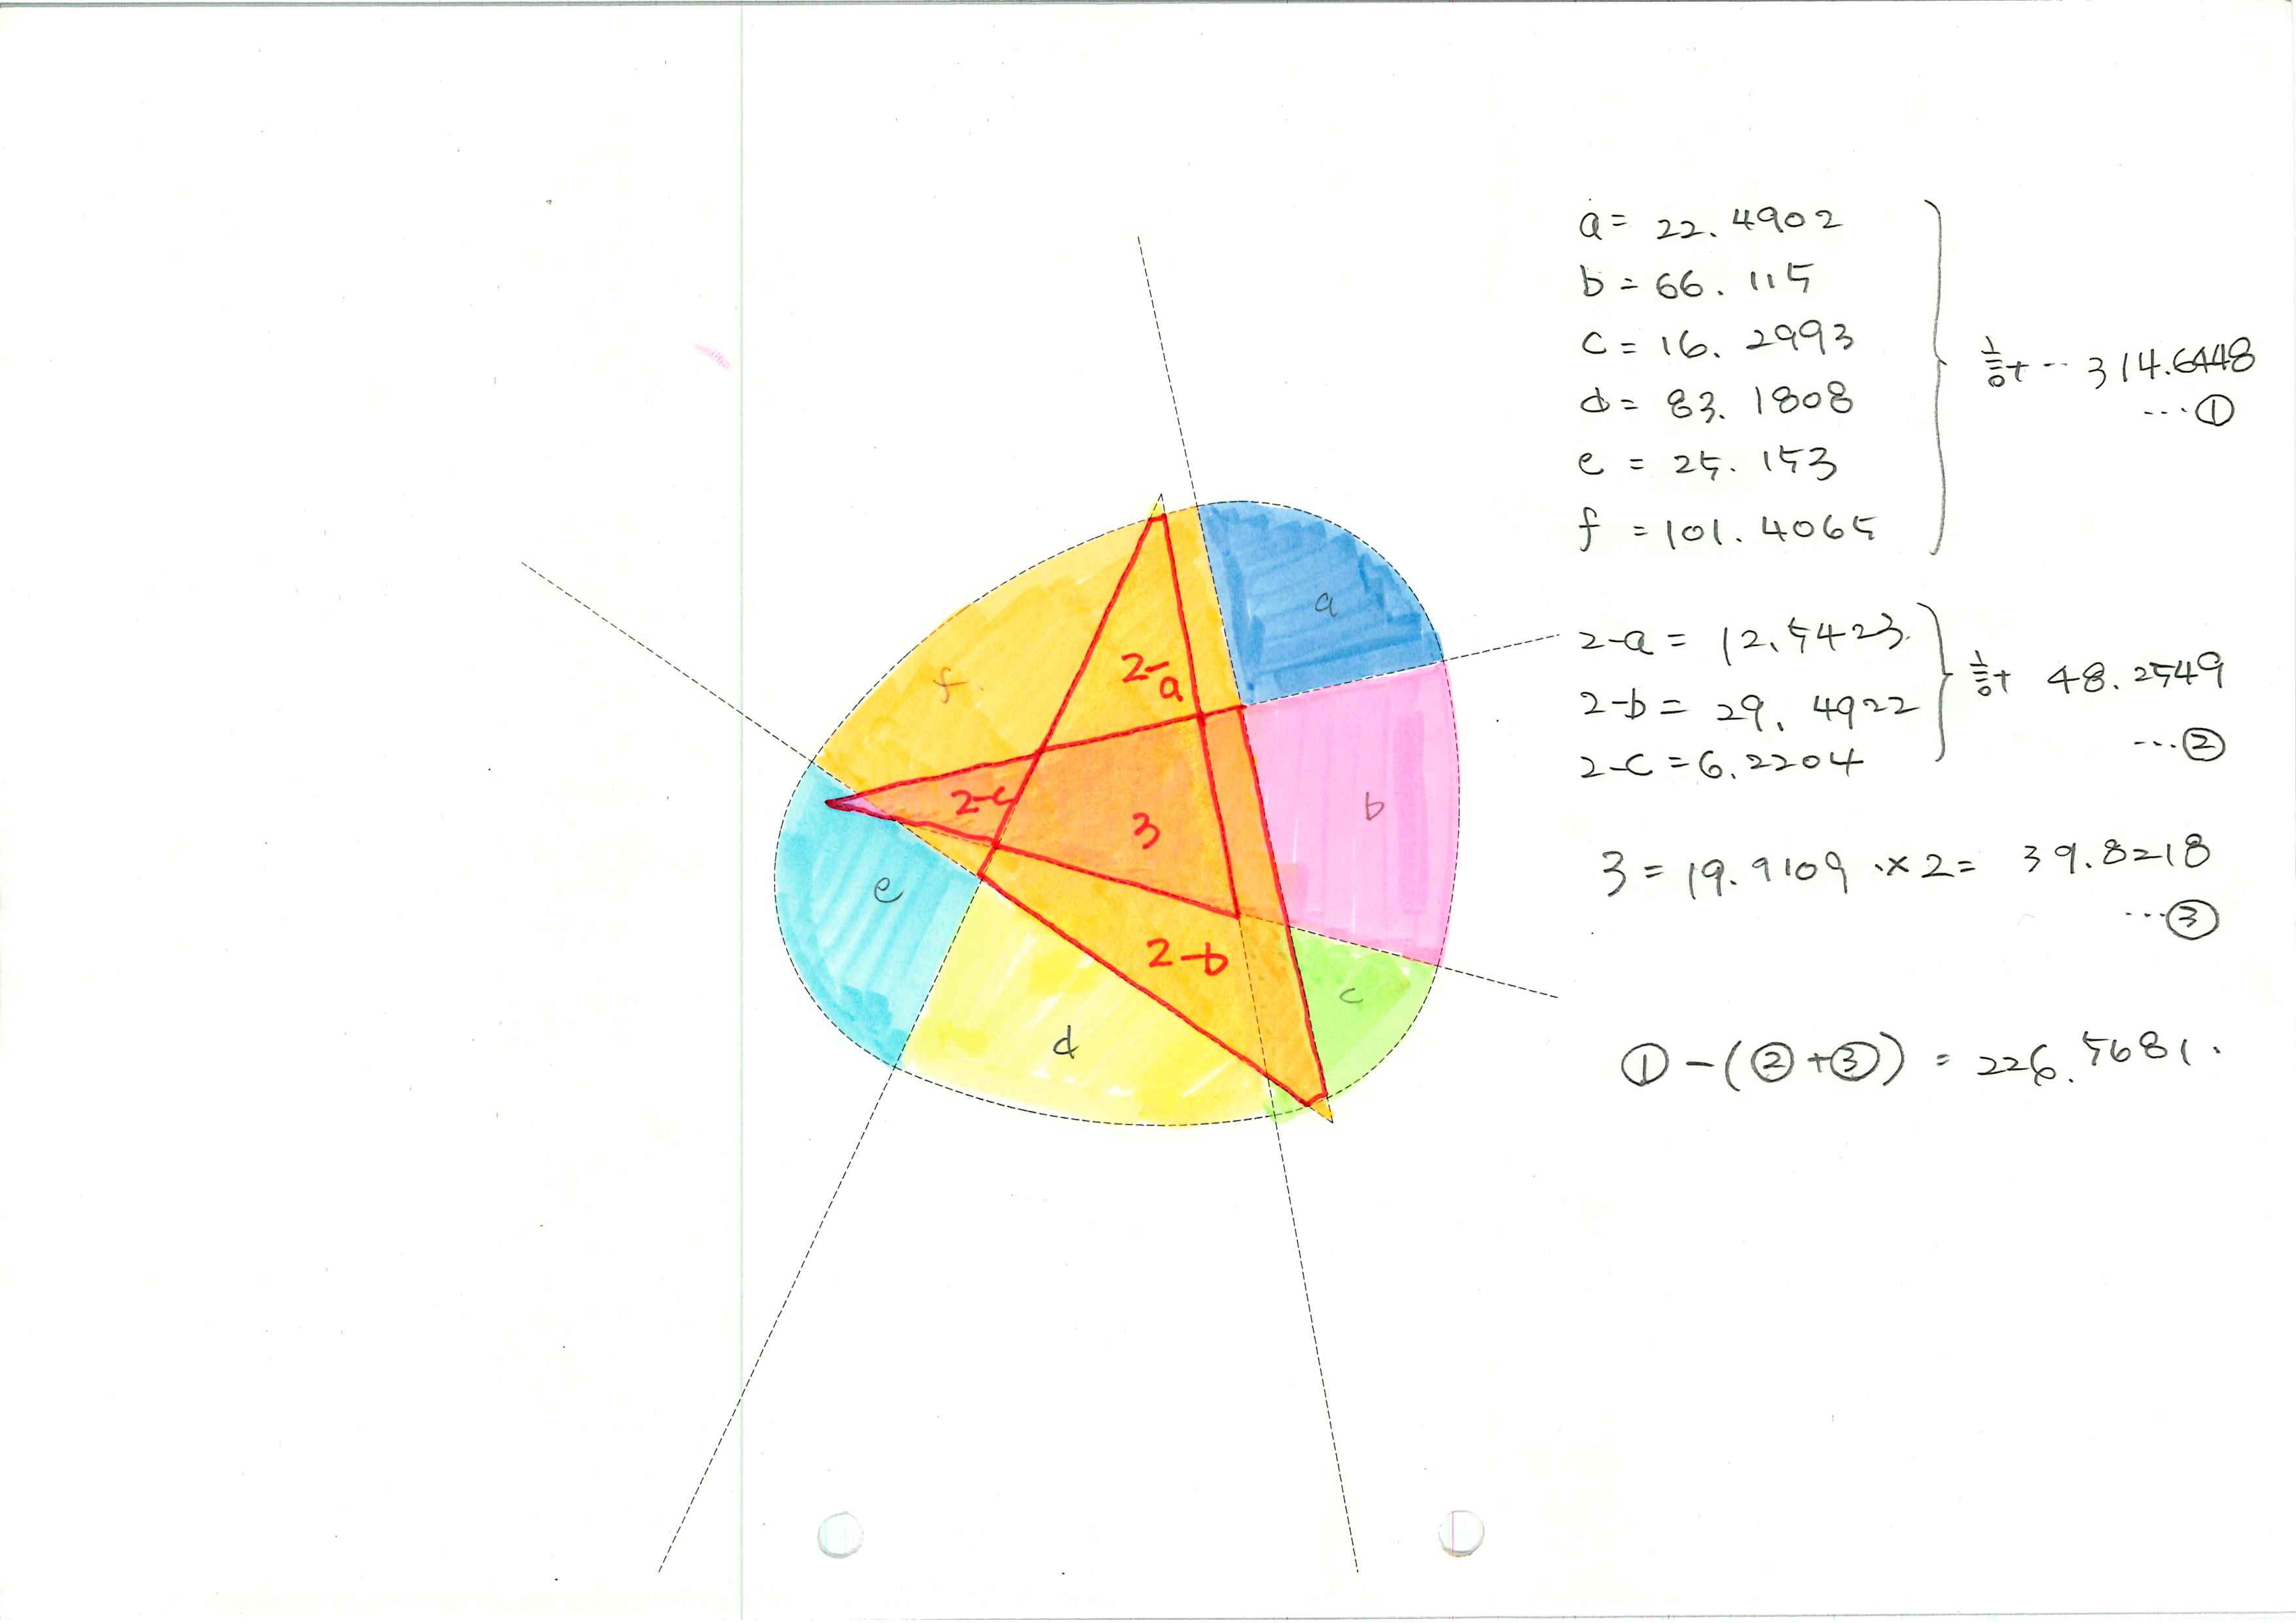 a = 22.4902
b = 66.115
c = 16.2993
d = 83.1808
e = 25.153
f = 101.4065
합 ... 314.6448
...①
2-a = 12.5423
2-b = 29.4922
2-c = 6.2204
합 48.2549
...②
3 = 19.9109 × 2 = 39.8218
...③
① - (② + ③) = 226.5681.
a
b
c
d
e
f
2-a
2-b
2-c
3